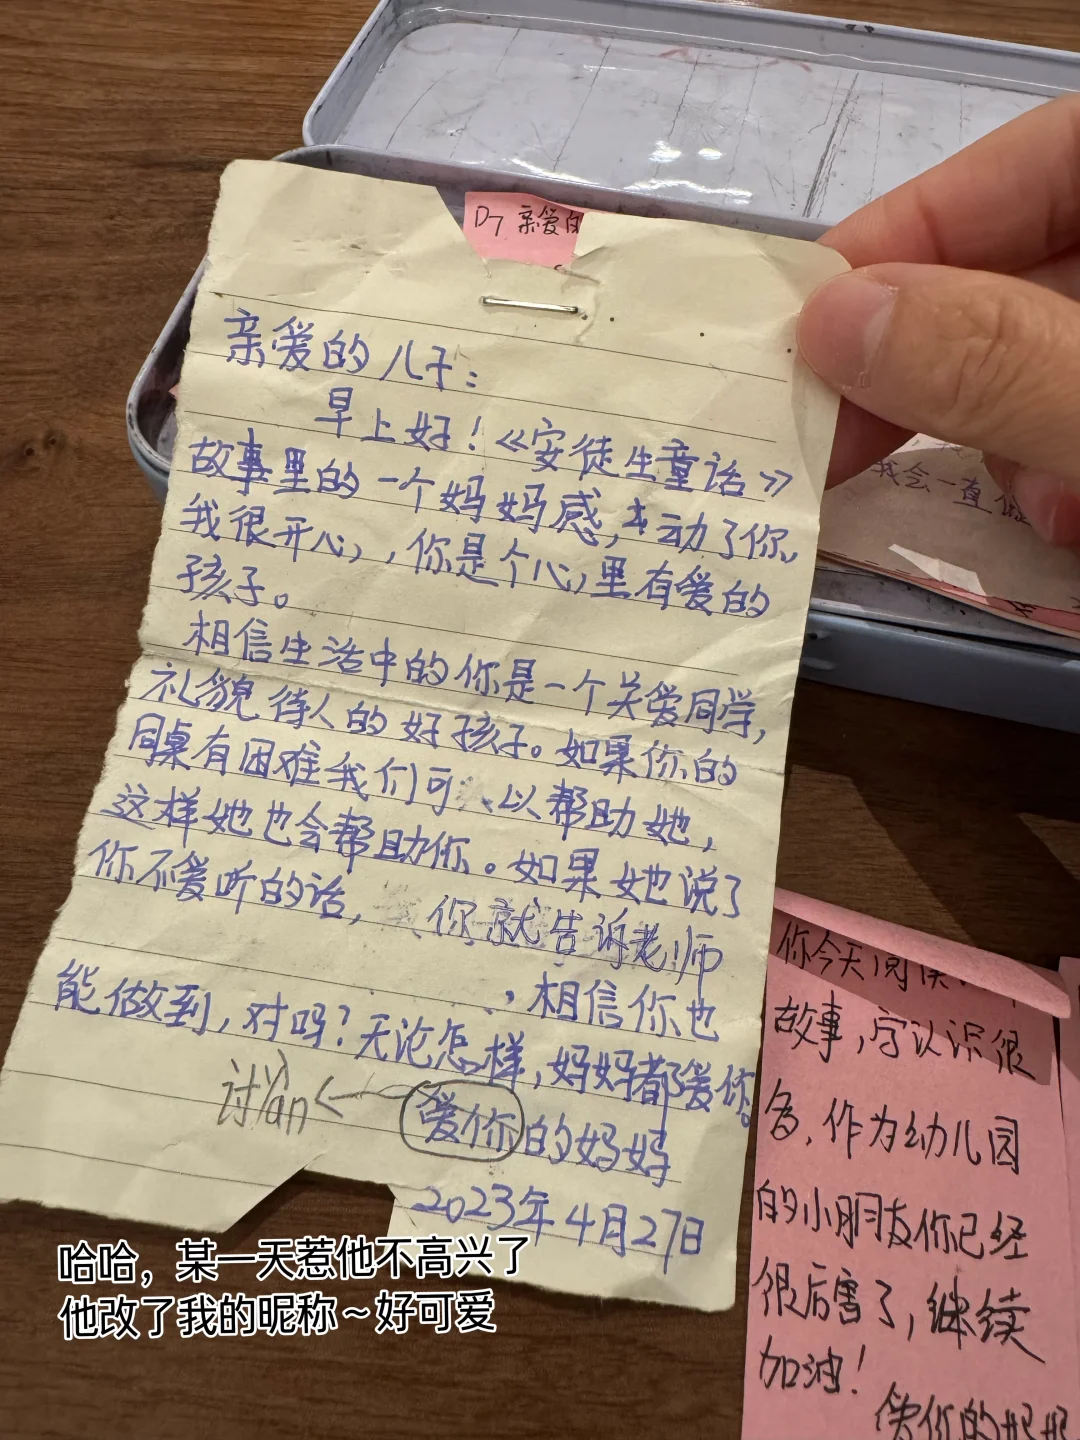 D7 亲爱的
亲爱的儿子：
早上好！《安徒生童话》
故事里的一个妈妈感动了你，
我很开心，你是个心里有爱的
孩子。
相信生活中的你是一个关爱同学，
礼貌待人的好孩子。如果你的
同桌有困难我们可以帮助她，
这样她也会帮助你。如果她说了
你不爱听的话，你就告诉老师
，相信你也
能做到，对吗？无论怎样，妈妈都爱你。
讨yàn ← 爱你的妈妈
2023年4月27日
我会一直
你今天阅读
故事，字认识很
多，作为幼儿园
的小朋友你已经
很厉害了，继续
加油！
爱你的妈妈
哈哈，某一天惹他不高兴了
他改了我的昵称～好可爱